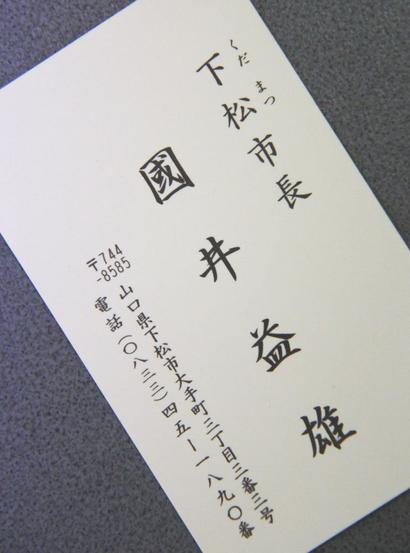 くだ まつ
下松市長
國井益雄
〒744-8585
山口県下松市大手町三丁目三番三号
電話(〇八三三)四五ー一八九〇番